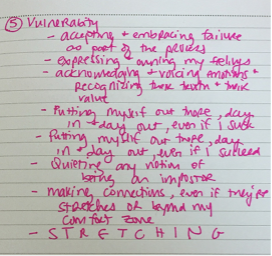 ⑤ Vulnerability
- accepting + embracing failure
as part of the process
- expressing + owning my feelings
- acknowledging + voicing emotions +
recognizing their truth + their
value
- Putting myself out there, day
in + day out, even if I suck
- Putting myself out there, day
in + day out, even if I succeed
- Quieting any notion of
being an impostor
- making connections, even if they're
stretches or beyond my
comfort zone
- STRETCHING